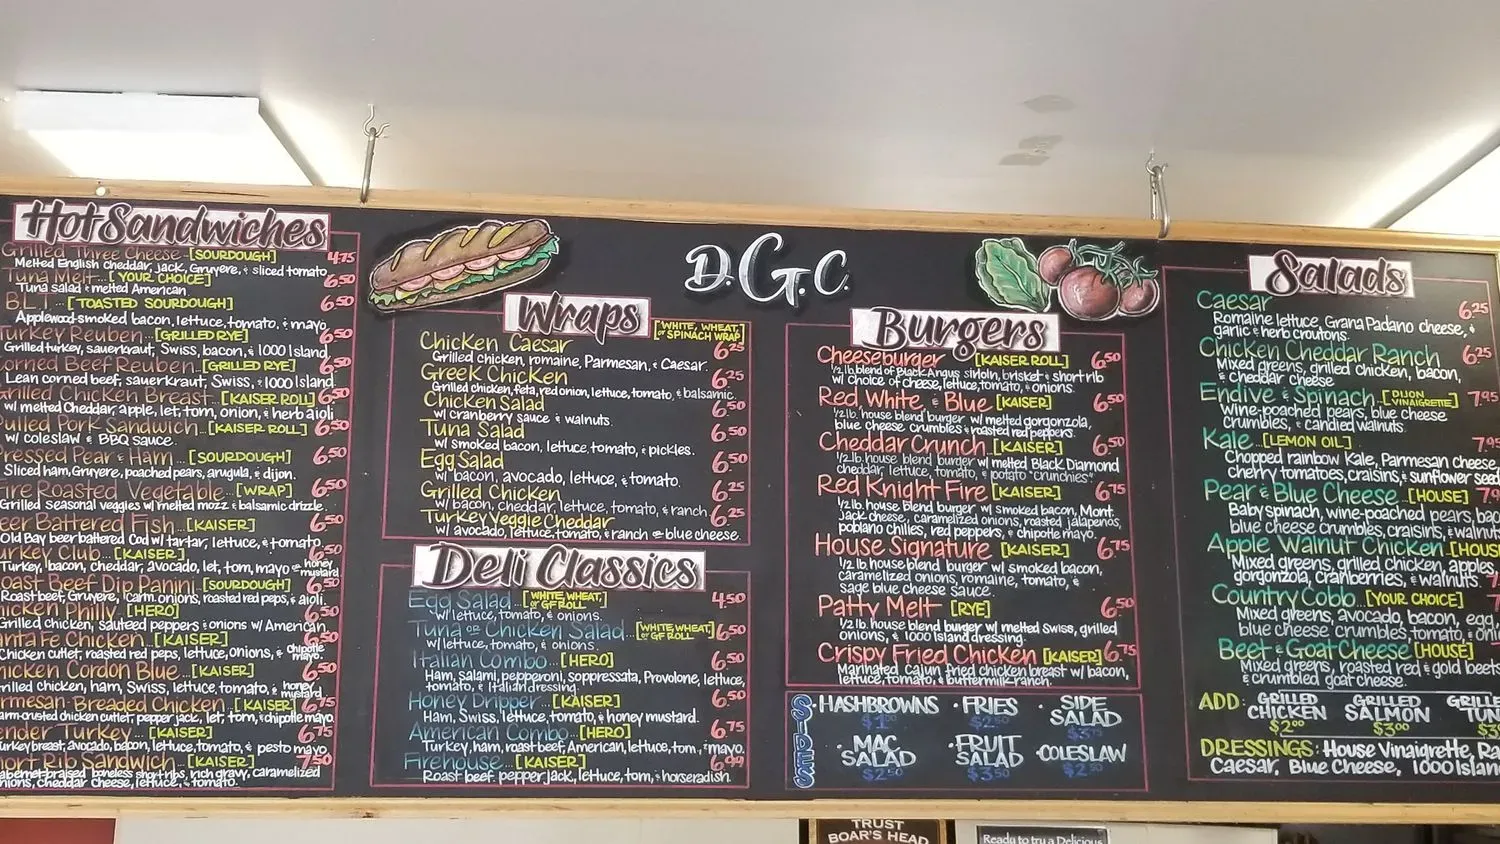 Hot Sandwiches
Grilled Three Cheese - [SOURDOUGH] 4.75
Melted English cheddar, jack, Gruyere, & sliced tomato
Tuna Melt - [YOUR CHOICE] 6.50
Tuna salad & melted American
B.L.T. ... [TOASTED SOURDOUGH] 6.50
Applewood-smoked bacon, lettuce, tomato, & mayo
Turkey Reuben ... [GRILLED RYE] 6.50
Grilled turkey, sauerkraut, Swiss, bacon, & 1000 Island
Corned Beef Reuben ... [GRILLED RYE] 6.50
Lean corned beef, sauerkraut, Swiss, & 1000 Island.
Grilled Chicken Breast ... [KAISER ROLL] 6.50
w/ melted Cheddar, apple, let, tom, onion, & herb aioli
Pulled Pork Sandwich ... [KAISER ROLL] 6.50
w/ coleslaw & BBQ sauce.
Pressed Pear & Ham ... [SOURDOUGH] 6.50
Sliced ham, Gruyere, poached pears, arugula, & dijon.
Fire Roasted Vegetable ... [WRAP] 6.50
Grilled seasonal veggies w/ melted mozz & balsamic drizzle.
Beer Battered Fish ... [KAISER] 6.50
Old Bay beer battered Cod w/ tartar, lettuce, & tomato
Turkey Club ... [KAISER] 6.50
Turkey, bacon, cheddar, avocado, let, tom, mayo or honey mustard.
Roast Beef Dip Panini ... [SOURDOUGH] 6.50
Roast beef, Gruyere, carm. onions, roasted red peps, & aioli.
Chicken Philly ... [HERO] 6.50
Grilled chicken, sauteed peppers & onions w/ American
Santa Fe Chicken ... [KAISER] 6.50
Chicken cutlet, roasted red peps, lettuce, onions, & chipotle mayo.
Chicken Cordon Blue ... [KAISER] 6.50
Grilled chicken, ham, Swiss, lettuce, tomato, & honey mustard
Parmesan-Breaded Chicken ... [KAISER] 6.75
Parm-crusted chicken cutlet, pepper jack, let, tom, & chipotle mayo.
Tender Turkey ... [KAISER] 6.75
Turkey breast, avocado, bacon, lettuce, tomato, & pesto mayo
Short Rib Sandwich ... [KAISER] 7.50
Cabernet-braised boneless short ribs, rich gravy, caramelized
onions, cheddar cheese, lettuce, & tomato.
D.G.C.
Wraps
[WHITE, WHEAT, or SPINACH WRAP]
Chicken Caesar 6.25
Grilled chicken, romaine, Parmesan, & Caesar.
Greek Chicken 6.25
Grilled chicken, feta, red onion, lettuce, tomato, & balsamic.
Chicken Salad 6.50
w/ cranberry sauce & walnuts.
Tuna Salad 6.50
w/ smoked bacon, lettuce, tomato, & pickles.
Egg Salad 6.50
w/ bacon, avocado, lettuce, & tomato.
Grilled Chicken 6.25
w/ bacon, cheddar, lettuce, tomato, & ranch.
Turkey Veggie Cheddar 6.25
w/ avocado, lettuce, tomato, & ranch or blue cheese.
Deli Classics
Egg Salad ... [WHITE, WHEAT, or GF ROLL] 4.50
w/ lettuce, tomato, & onions.
Tuna or Chicken Salad ... [WHITE, WHEAT, or GF ROLL] 6.50
w/ lettuce, tomato, & onions.
Italian Combo ... [HERO] 6.50
Ham, salami, pepperoni, soppressata, Provolone, lettuce,
tomato, & Italian dressing.
Honey Dripper ... [KAISER] 6.50
Ham, Swiss, lettuce, tomato, & honey mustard.
American Combo ... [HERO] 6.75
Turkey, ham, roast beef, American, lettuce, tom, & mayo.
Firehouse ... [KAISER] 6.99
Roast beef, pepper jack, lettuce, tom, & horseradish.
Burgers
Cheeseburger [KAISER ROLL] 6.50
1/2 lb blend of Black Angus sirloin, brisket & short rib
w/ choice of cheese, lettuce, tomato, & onions.
Red White & Blue [KAISER] 6.50
1/2 lb. house blend burger w/ melted gorgonzola,
blue cheese crumbles & roasted red peppers.
Cheddar Crunch [KAISER] 6.50
1/2 lb. house blend burger w/ melted Black Diamond
cheddar, lettuce, tomato, & potato "crunchies".
Red Knight Fire [KAISER] 6.75
1/2 lb. house blend burger w/ smoked bacon, Mont.
Jack cheese, caramelized onions, roasted jalapenos,
poblano chilies, red peppers, & chipotle mayo.
House Signature [KAISER] 6.75
1/2 lb house blend burger w/ smoked bacon,
caramelized onions, romaine, tomato, &
sage blue cheese sauce.
Patty Melt [RYE] 6.50
1/2 lb. house blend burger w/ melted Swiss, grilled
onions, & 1000 Island dressing.
Crispy Fried Chicken [KAISER] 6.75
Marinated Cajun fried chicken breast w/ bacon,
lettuce, tomato, & buttermilk-ranch.
SIDES
· HASHBROWNS $1.00
· FRIES $2.50
· SIDE SALAD $3.75
· MAC SALAD $2.50
· FRUIT SALAD $3.50
· COLESLAW $2.50
Salads
Caesar 6.25
Romaine lettuce, Grana Padano cheese, &
garlic & herb croutons.
Chicken Cheddar Ranch 6.25
Mixed greens, grilled chicken, bacon,
& cheddar cheese
Endive & Spinach ... [DIJON VINAIGRETTE] 7.95
Wine-poached pears, blue cheese
crumbles, & candied walnuts.
Kale ... [LEMON OIL] 7.95
Chopped rainbow Kale, Parmesan cheese,
cherry tomatoes, craisins, & sunflower seed
Pear & Blue Cheese ... [HOUSE] 7.9
Baby spinach, wine-poached pears, bac
blue cheese crumbles, craisins, & walnut
Apple Walnut Chicken [HOUS
Mixed greens, grilled chicken, apples,
gorgonzola, cranberries, & walnuts. 7
Country Cobb ... [YOUR CHOICE] 7
Mixed greens, avocado, bacon, egg,
blue cheese crumbles, tomato, & oni
Beet & Goat Cheese [HOUSE]
Mixed greens, roasted red & gold beets
& crumbled goat cheese.
ADD: GRILLED CHICKEN $2.00
GRILLED SALMON $3.00
GRILLE TUN $3
DRESSINGS: House Vinaigrette, Ra
Caesar, Blue Cheese, 1000 Island
TRUST
BOAR'S HEAD
Ready to try a Delicious